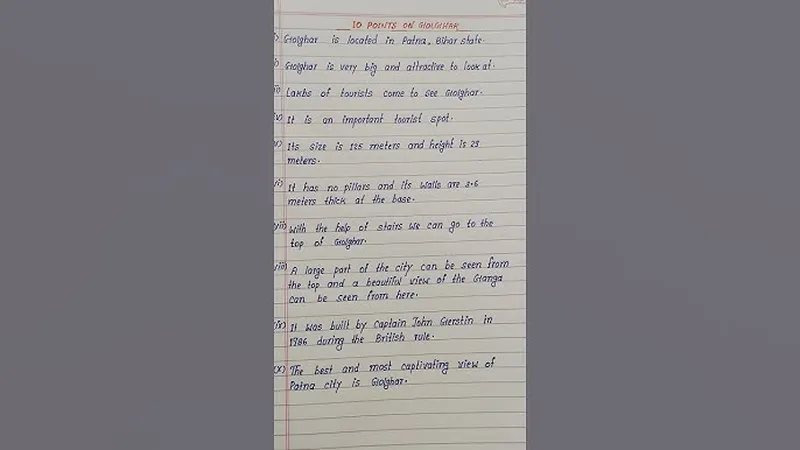 10 POINTS ON GOLGHAR
i) Golghar is located in Patna, Bihar state.
i) Golghar is very big and attractive to look at.
iii) Lakhs of tourists come to see Golghar.
iv) It is an important tourist spot.
v) Its size is 125 meters and height is 29
meters.
vi) It has no pillars and its walls are 3.6
meters thick at the base.
vii) With the help of stairs we can go to the
top of Golghar.
viii) A large part of the city can be seen from
the top and a beautiful view of the Ganga
can be seen from here.
ix) It was built by Captain John Gerstin in
1786 during the British rule.
x) The best and most captivating view of
Patna city is Golghar.